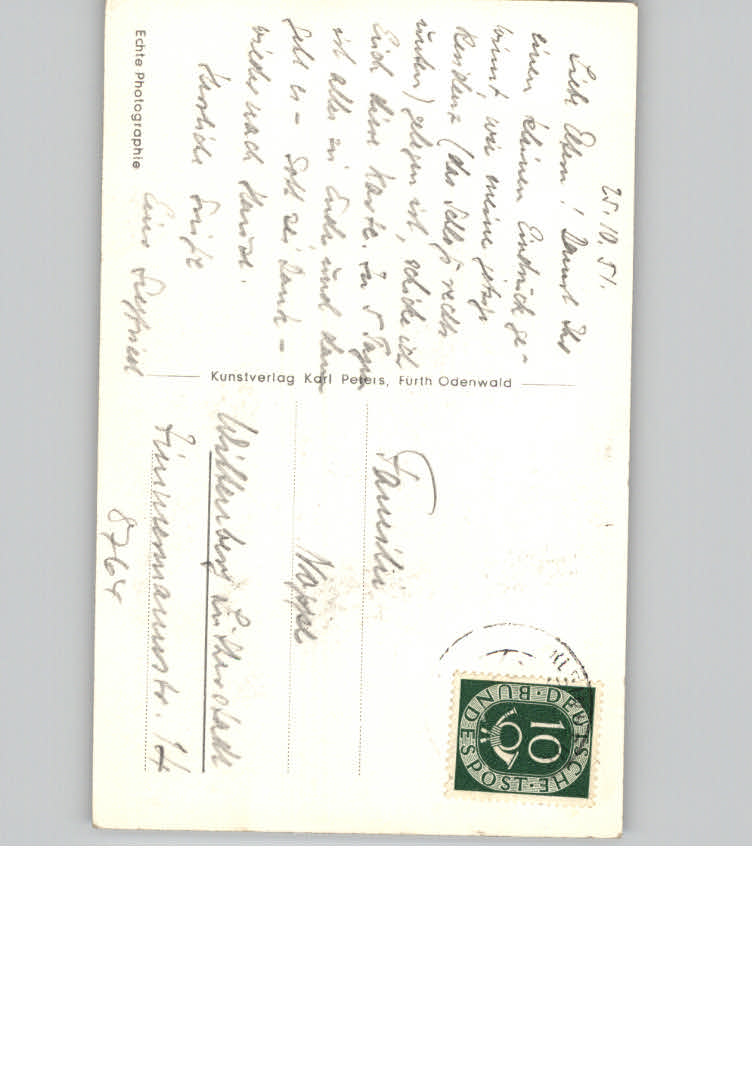 25.10.51.
Liebe Eltern! Damit Ihr
einen kleinen Eindruck ge-
winnt, wie meine jetzige
Residenz (das Schloß rechts
unten) gelegen ist, schicke ich
Euch diese Karte. In 5 Tagen
ist alles zu Ende und dann
geht es – Gott sei Dank –
wieder nach Hause.
Herzliche Grüße
Euer Siegfried
Echte Photographie
Kunstverlag Karl Peters, Fürth Odenwald
Familie
Wittenberg Lutherstadt
Zimmermannstr.
8764
DEUTSCHE BUNDESPOST
10